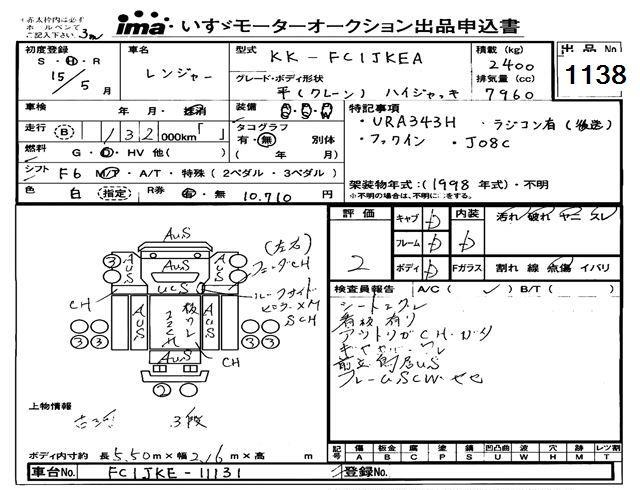 赤太枠内は必ず
ホールペンで
ご記入下さい
3m
ima いすゞモーターオークション出品申込書
初度登録 S・H・R 15/5月
車名 レンジャー
型式 KK-FC1JKEA
グレード・ボディ形状 平(クレーン) ハイジャッキ
積載(kg) 2400
排気量(cc) 7960
出品No 1138
車検 年・月・抹消
装備 AC PS PW
特記事項
・URA343H ・ラジコン有(後送)
・フックイン ・J08C
走行 B 132 000km「 」
タコグラフ 有・無 別体 ( 年 月)
燃料 G・D・HV 他( )
シフト F6 M/T・A/T・特殊(2ペダル・3ペダル)
架装物年式:(1998年式)・不明
※不明の場合は、不明に○をする。
色 白 (指定) R券 有・無 10.710円
評価 2
キャブ D
フレーム D
ボディ D
内装 D
Fガラス
汚れ 破れ ヤニ スレ
割れ 線 点傷 イバリ
検査員報告 A/C( ✓ ) B/T( )
シートスレ
看板有り
アウトリガCH・ガリ
フレームUSCW・セセ
AUS
(左右)
フェンダCH
AUS
AUS
UCS
CH
ルーフサイド
SCH
AUS
AUS
CH
AUS
3 3 3 3 2
上物情報
3段
ボディ内寸約 長5.50m×幅2.16m×高 m
記号 傷 板金 腐 塗 錆 凹凸曲 波 穴 跡 レツ割
A B C P S U W H M T
車台No. FC1JKE-11131
登録No.